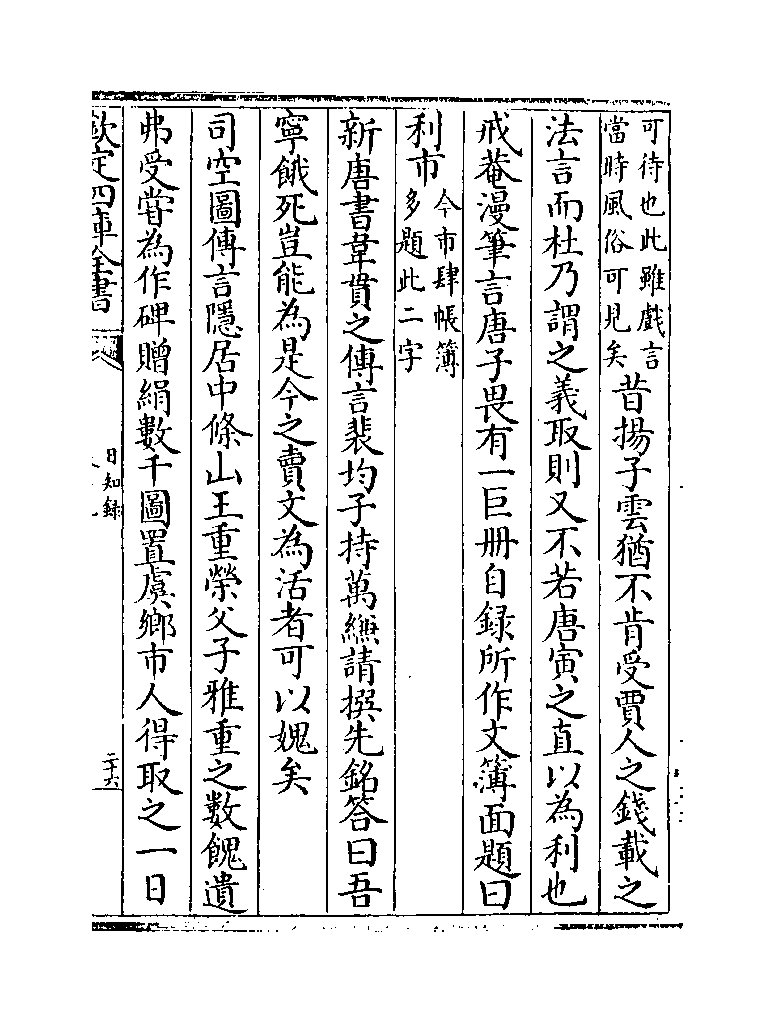 可待也此雖戲言
當時風俗可見矣
昔揚子雲猶不肯受賈人之錢載之
法言而杜乃謂之義取則又不若唐寅之直以為利也
戒菴漫筆言唐子畏有一巨冊自録所作文簿面題曰
利市
今市肆帳簿
多題此二字
新唐書韋貫之傳言裴均子持萬縑請撰先銘答曰吾
寧餓死豈能為是今之賣文為活者可以媿矣
司空圖傳言隱居中條山王重榮父子雅重之數餽遺
弗受嘗為作碑贈絹數千圖置虞鄉市人得取之一日
欽定四庫全書
日知録
二十六